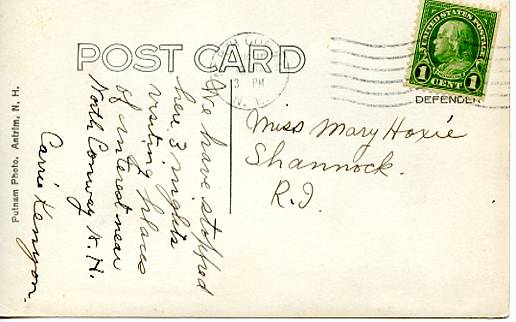 POST CARD
3 PM
UNITED STATES POSTAGE
1 CENT 1
DEFENDER
We have stopped
here 3 nights
visiting places
of interest near
North Conway N.H.
Carrie Kenyon.
Miss Mary Hoxie
Shannock.
R.I.
Putnam Photo. Antrim, N. H.